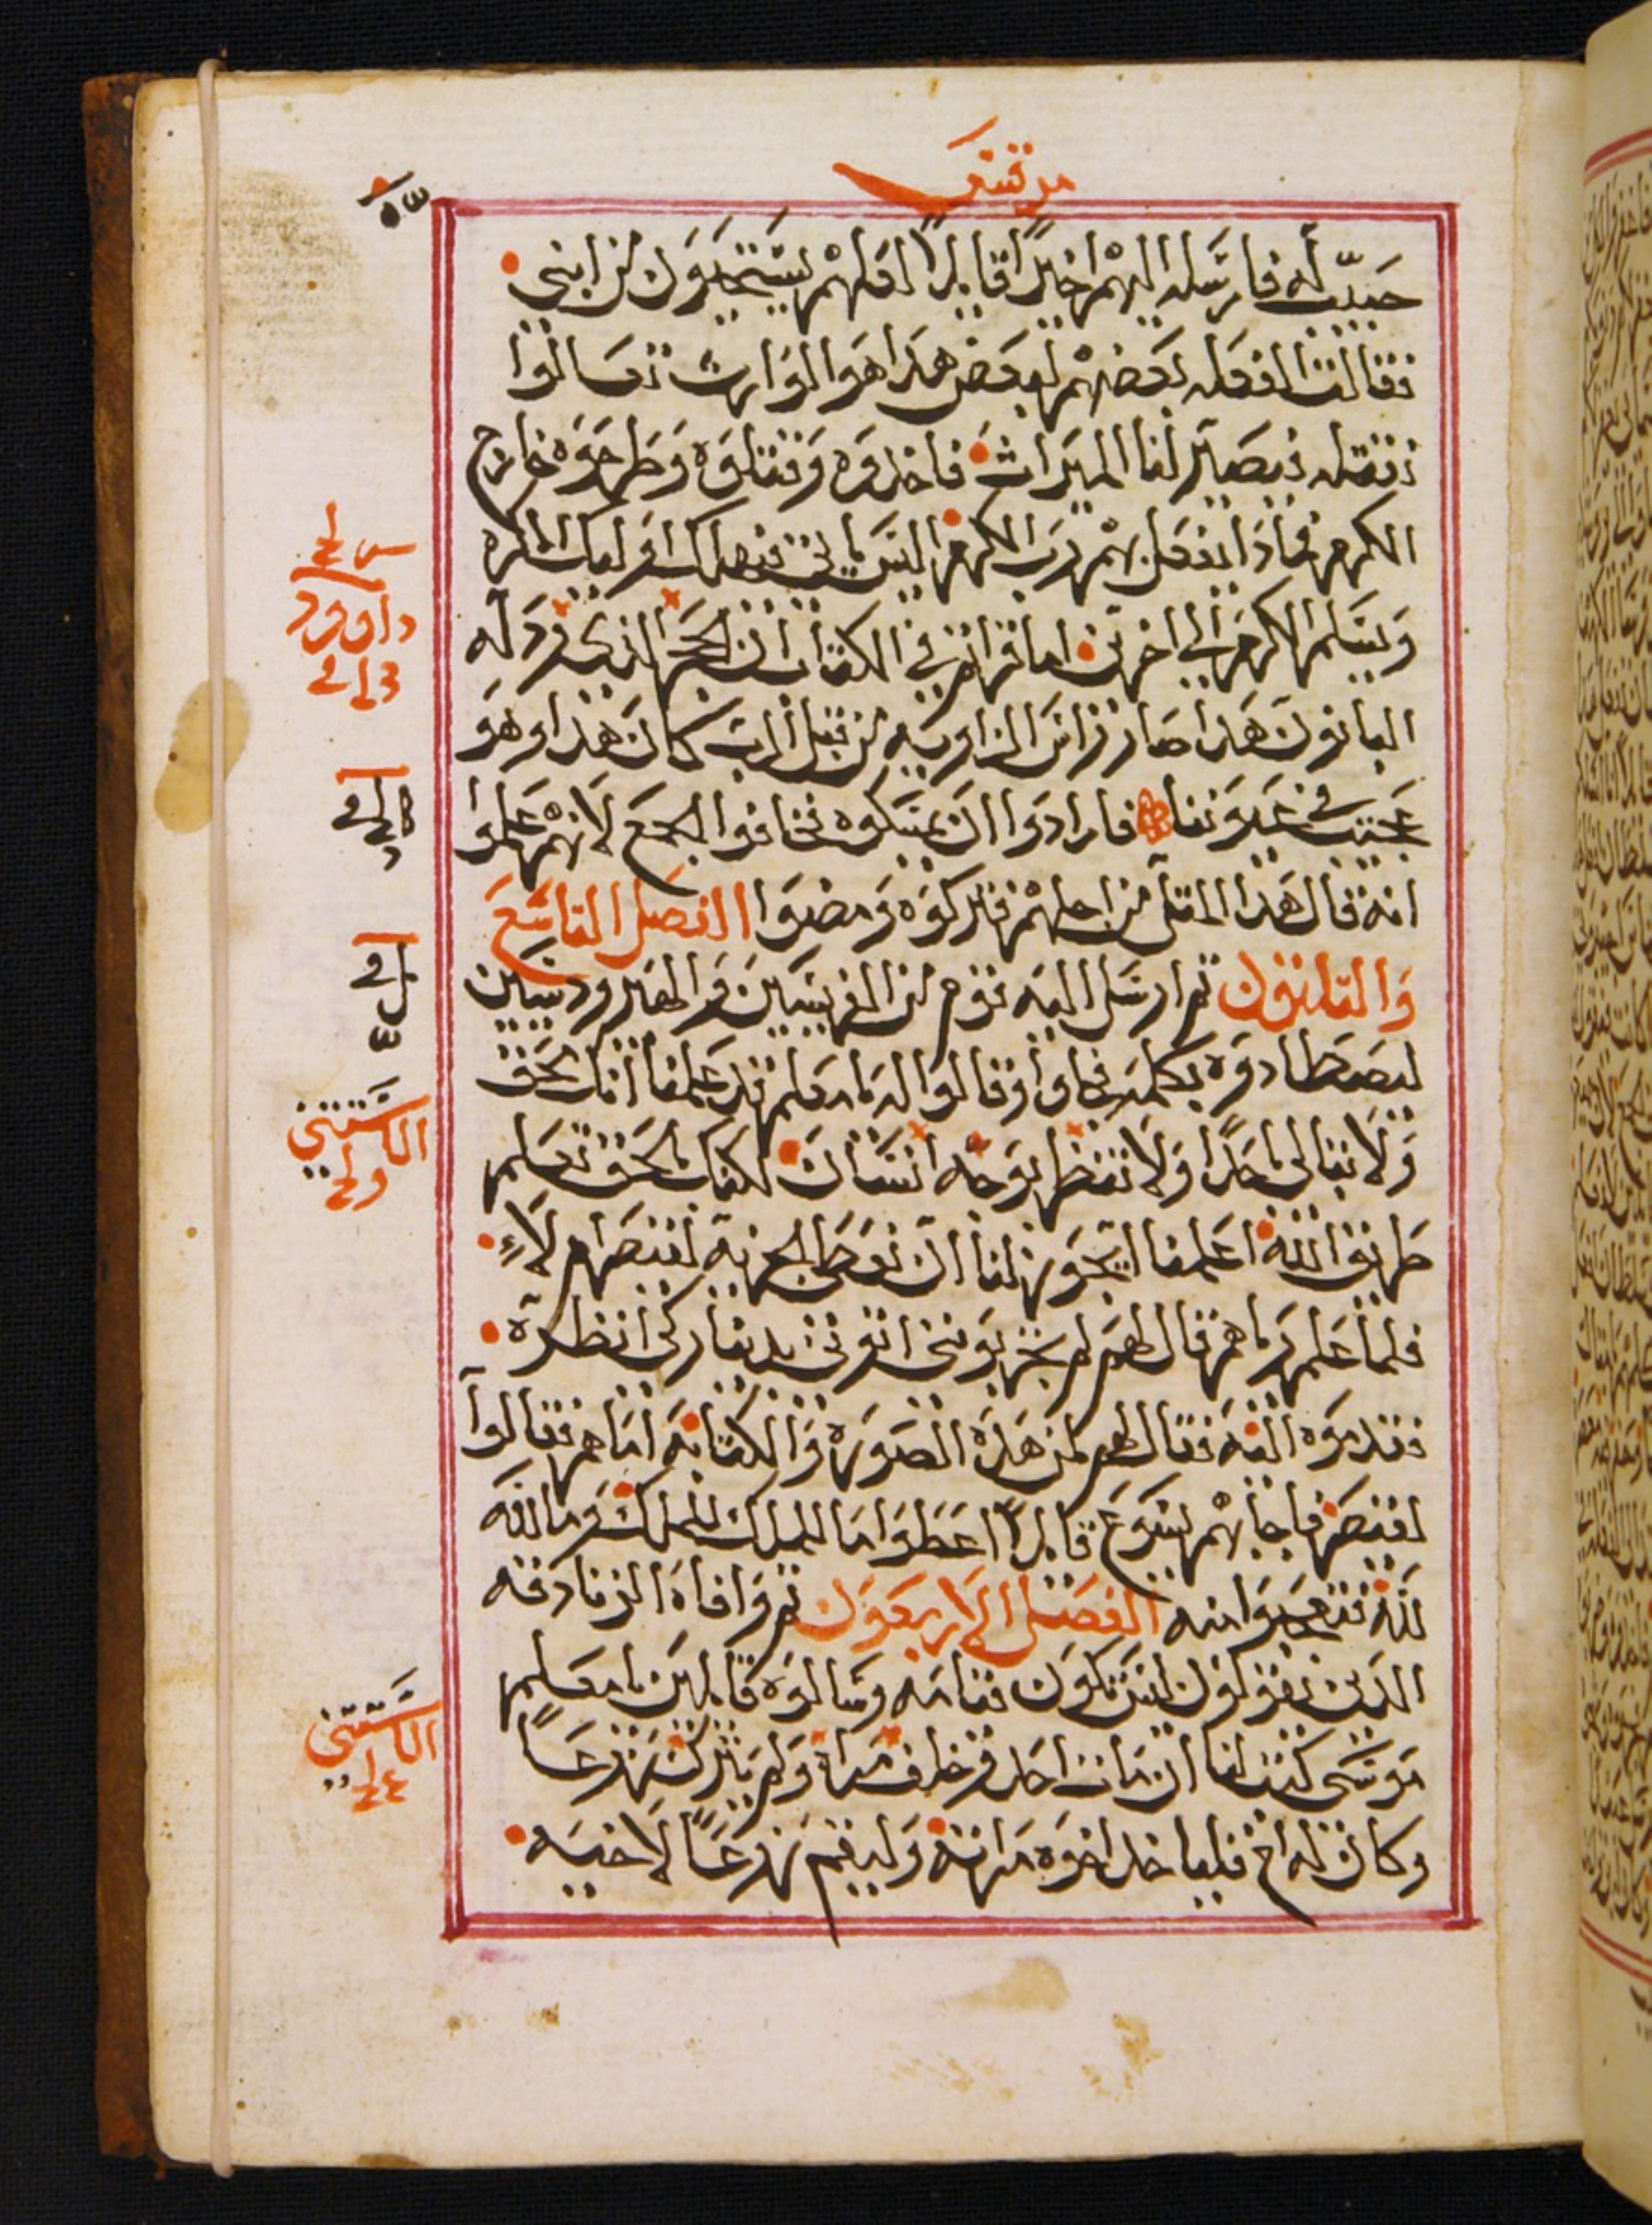 مرقس
حبيب له فارسله اليهم اخيرًا قايلا لعلهم يستحيون من ابني
فقالت الفعله بعضهم لبعض هذا هوالوارث تعالوا
نقتله فيصير لنا الميراث فاخذوه وقتلوه وطرحوه خارج
الكرم فماذا يفعل بهم رب الكرم اليس ياتي فيهلك اوليك الكره
ويسلم الكرم الي اخرين اما قراتم في الكتاب ان الحجر الذي رذله
البانون هذا صار راس الزاويه من قبل الرب كان هذا وهو
عجيب في عيوننا فارادوا ان يمسكوه فخافوا الجمع لانهم علموا
انه قال هذا المثل من اجلهم فتركوه ومضوا الفصل التاسع
والثلاثون ثم ارسل اليه قوم من الفريسيين والهيرودسيين
ليصطادوه بكلمه فجاوا وقالوا له يامعلم قد علمنا انك محق
ولا تبالي باحدًا ولا تنظر بوجه انسان لكنك بالحق تعلم
طريق الله اعلمنا ايجوز لنا ان نعطي الجزيه لقيصر ام لاء
فلما علم رياهم قال لهم لم تجربونني اتوني بدينار لكي انظره
فقدموه اليه فقال لهم لمن هذه الصوره والكتابه اياهم فقالوا
لقيصر فاجابهم يسوع قايلاً اعطوا ما للملك للملك وما لله
لله فتعجبوا منه الفصل الاربعون ثم وافاه الزنادقه
الذين يقولون ليس تكون قيامه وسالوه قايلين يامعلم
موسي كتب لنا ان مات احد وخلف مراة ولم يترك زرعًا
وكان له اخ فلياخذ اخوه مراته وليقيم زرعًا لاخيه
داوود
الاستثني
الاستثني